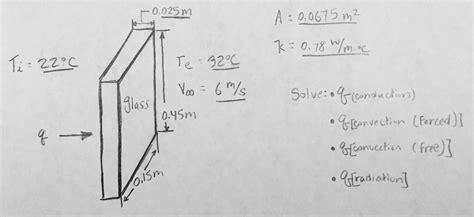 0.025m
A = 0.0675 m²
K = 0.78 W/m·°C
Ti = 22°C
Te = 32°C
V∞ = 6 m/s
glass
0.45m
q
0.15m
Solve: • q(conduction)
• q[convection (forced)]
• q[convection (free)]
• q[radiation]